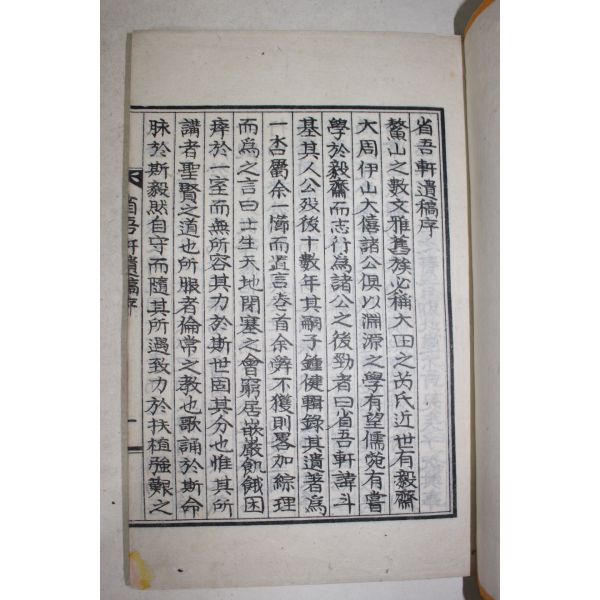 省吾軒遺稿序
鰲山之數文雅舊族必稱大田之芮氏近世有毅齋
大周伊山大僖諸公俱以淵源之學有望儒苑有嘗
學於毅齋而志行爲諸公之後勁者曰省吾軒諱斗
基其人公歿後十數年其嗣子鍾健輯錄其遺著爲
一 屬余一 而 言卷首余辭不獲則畧加綜理
而爲之言曰士生天地閉塞之會窮居嵌巖飢餓困
瘁於一室而無所容其力於斯世固其分也惟其所
講者聖賢之道也所服者倫常之教也歌誦於斯命
脉於斯毅然自守而隨其所遇致力於扶植強艱之
省吾軒遺稿序
一